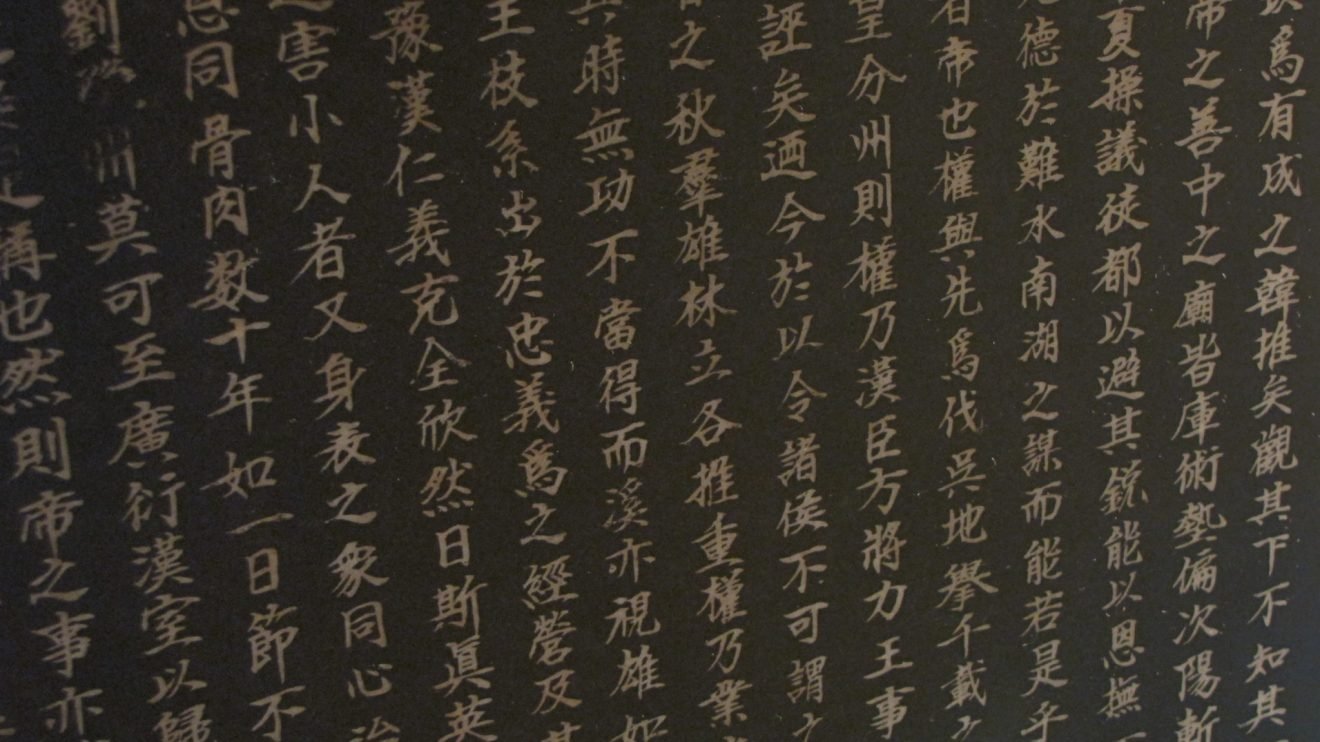 以爲有成之韓推矣觀其下不知其
帝之善中之廟皆庫術藝偏次陽斬
夏操議徒都以避其銳能以恩撫
德於難水南湖之謀而能若是乎
者帝也權與先爲伐吳地擧千載之
皇分州則權乃漢臣方將力王事
誣矣迺今於以令諸侯不可謂之
之秋羣雄林立各推重權乃業
其時無功不當得而溪亦視雄如
王枝系出於忠義爲之經營及其
豫漢仁義克全欣然曰斯眞英
之害小人者又身表之衆同心治
恩同骨肉数十年如一日節不
劉 州莫可至廣衍漢室以歸
稱也然則帝之事亦